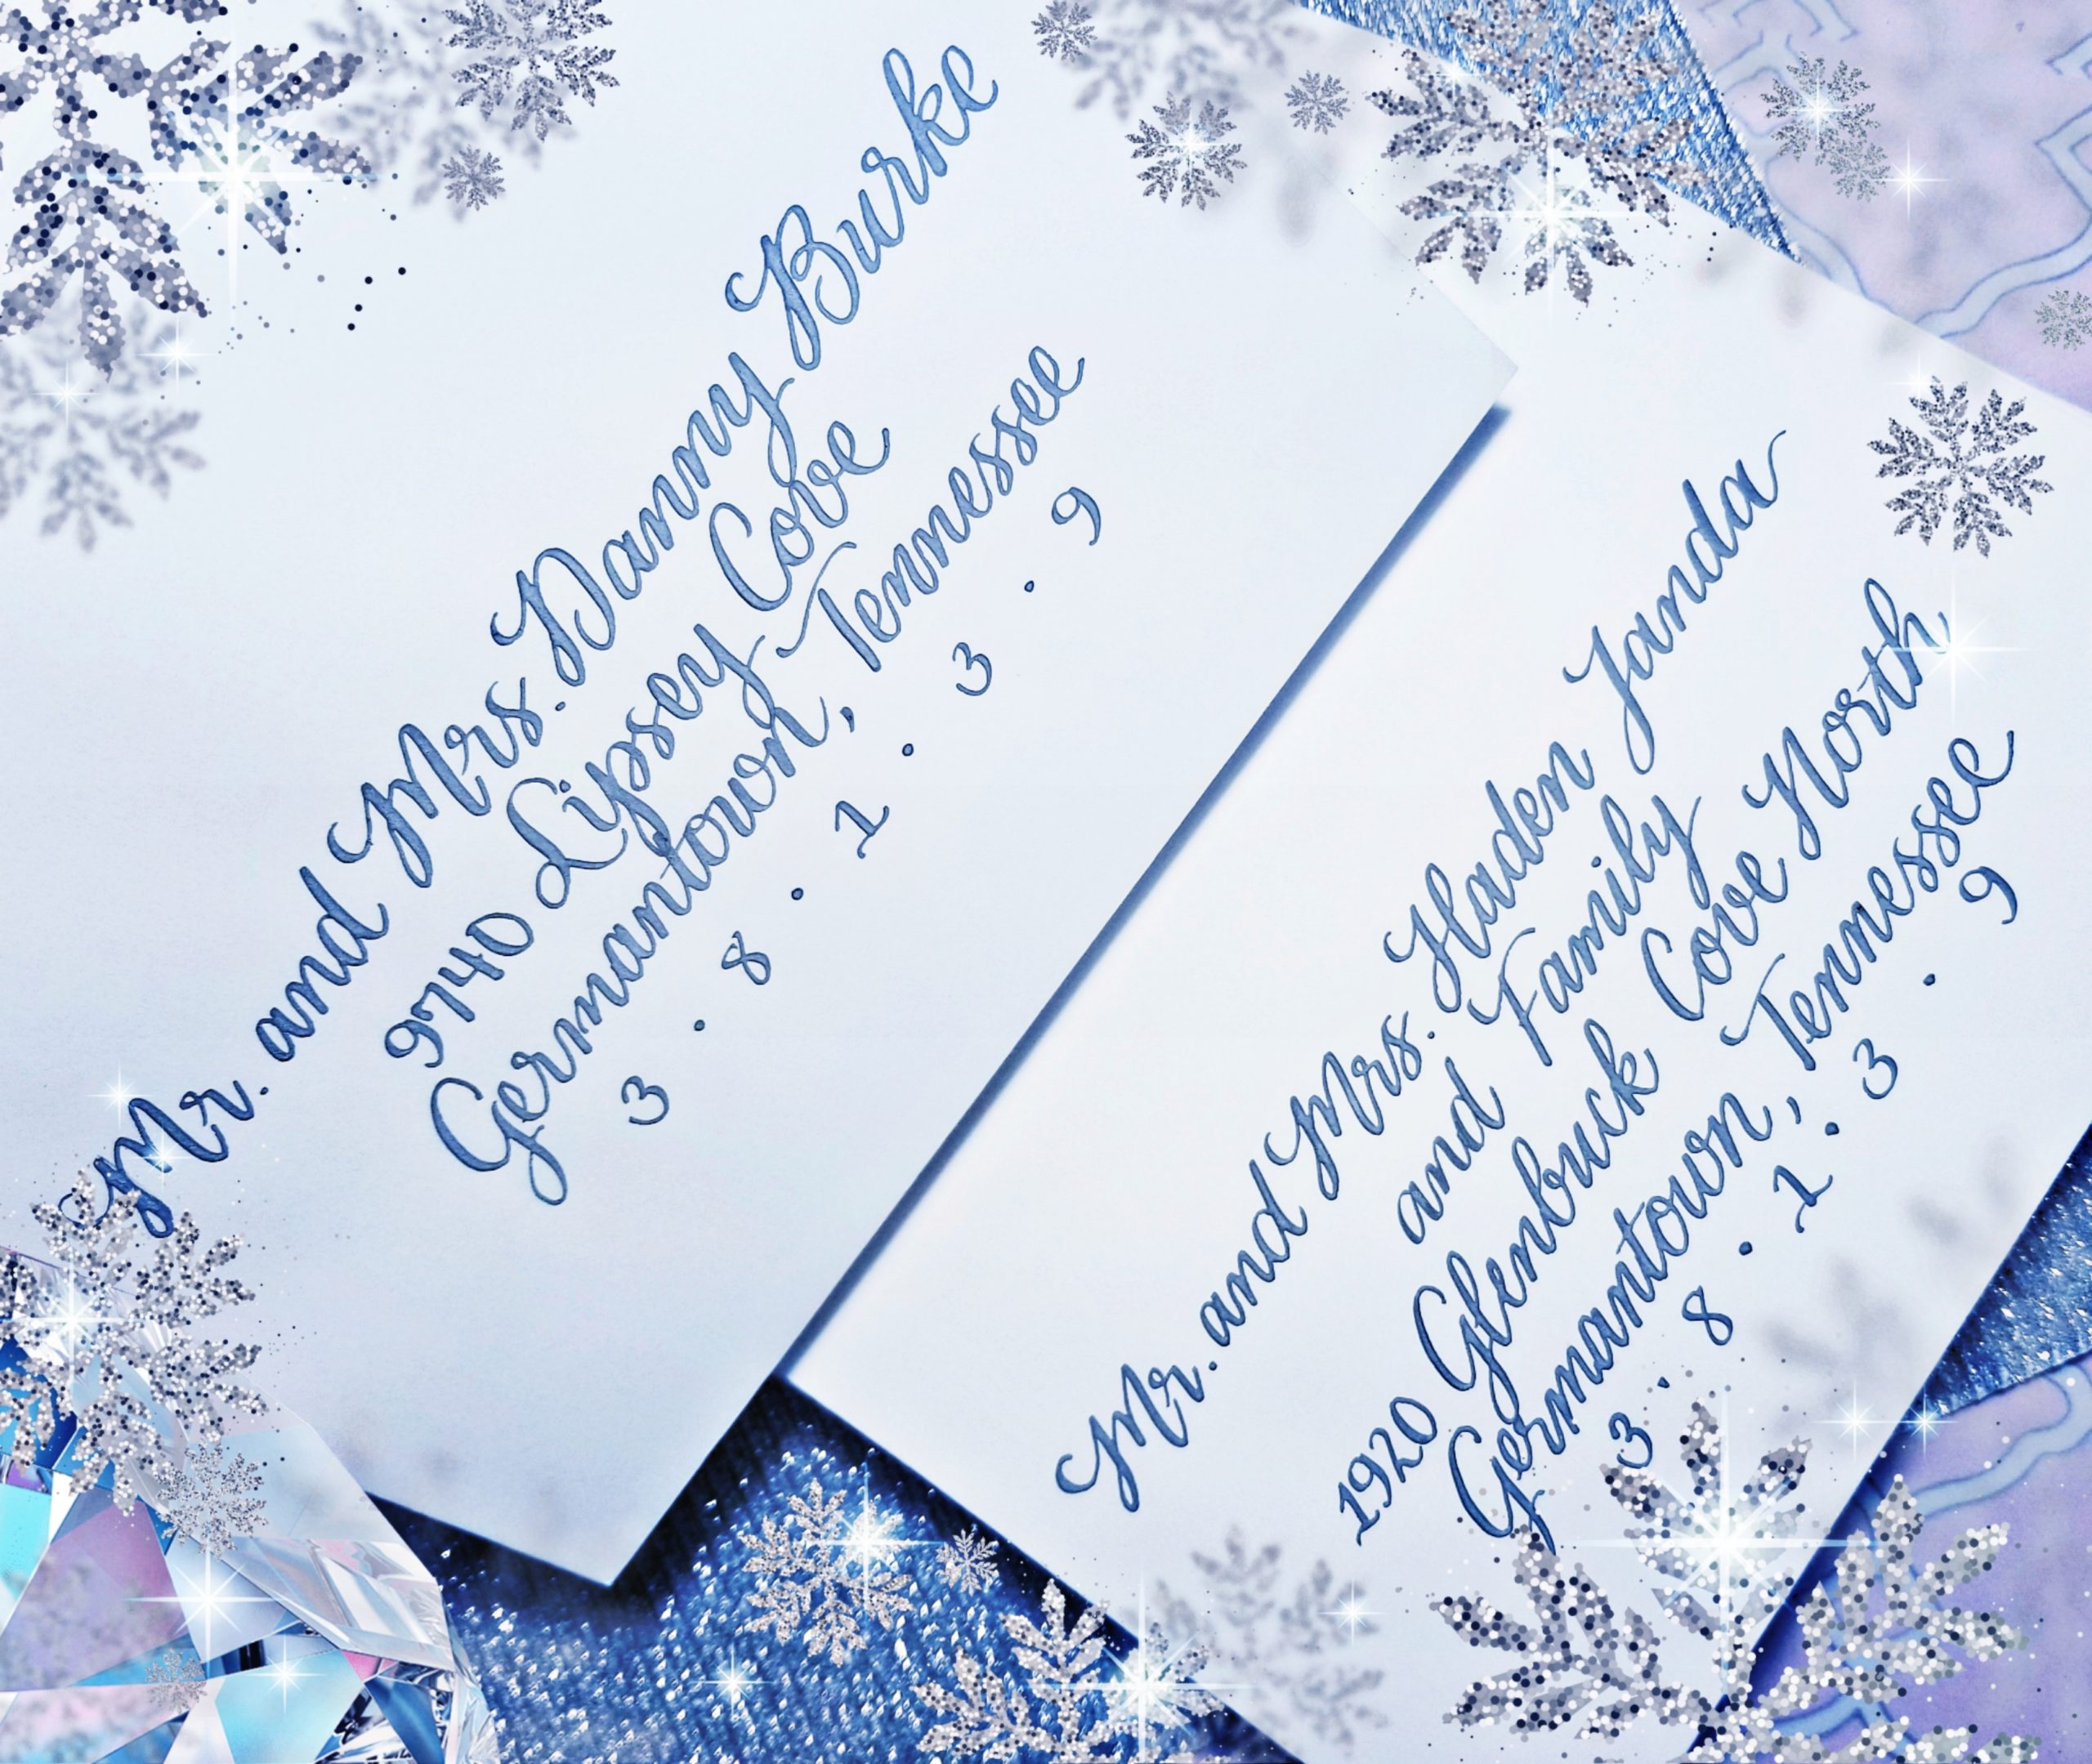 Mr. and Mrs. Danny Burke
9740 Lipsey Cove
Germantown, Tennessee
3 . 8 . 1 . 3 . 9
Mr. and Mrs. Haden Janda
and Family
1920 Glenbuck Cove North
Germantown, Tennessee
3 . 8 . 1 . 3 . 9